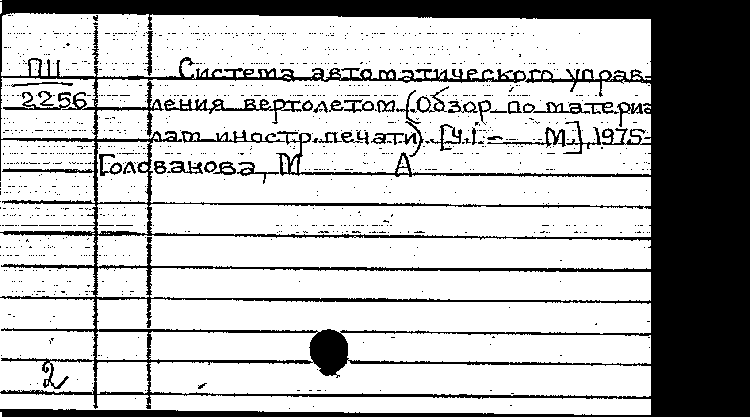 ПII Система автоматического управ-
2256 ления вертолетом (Обзор по материа
лам иностр. печати). [Ч.I.- М.], 1975-
Голованова, М А
2